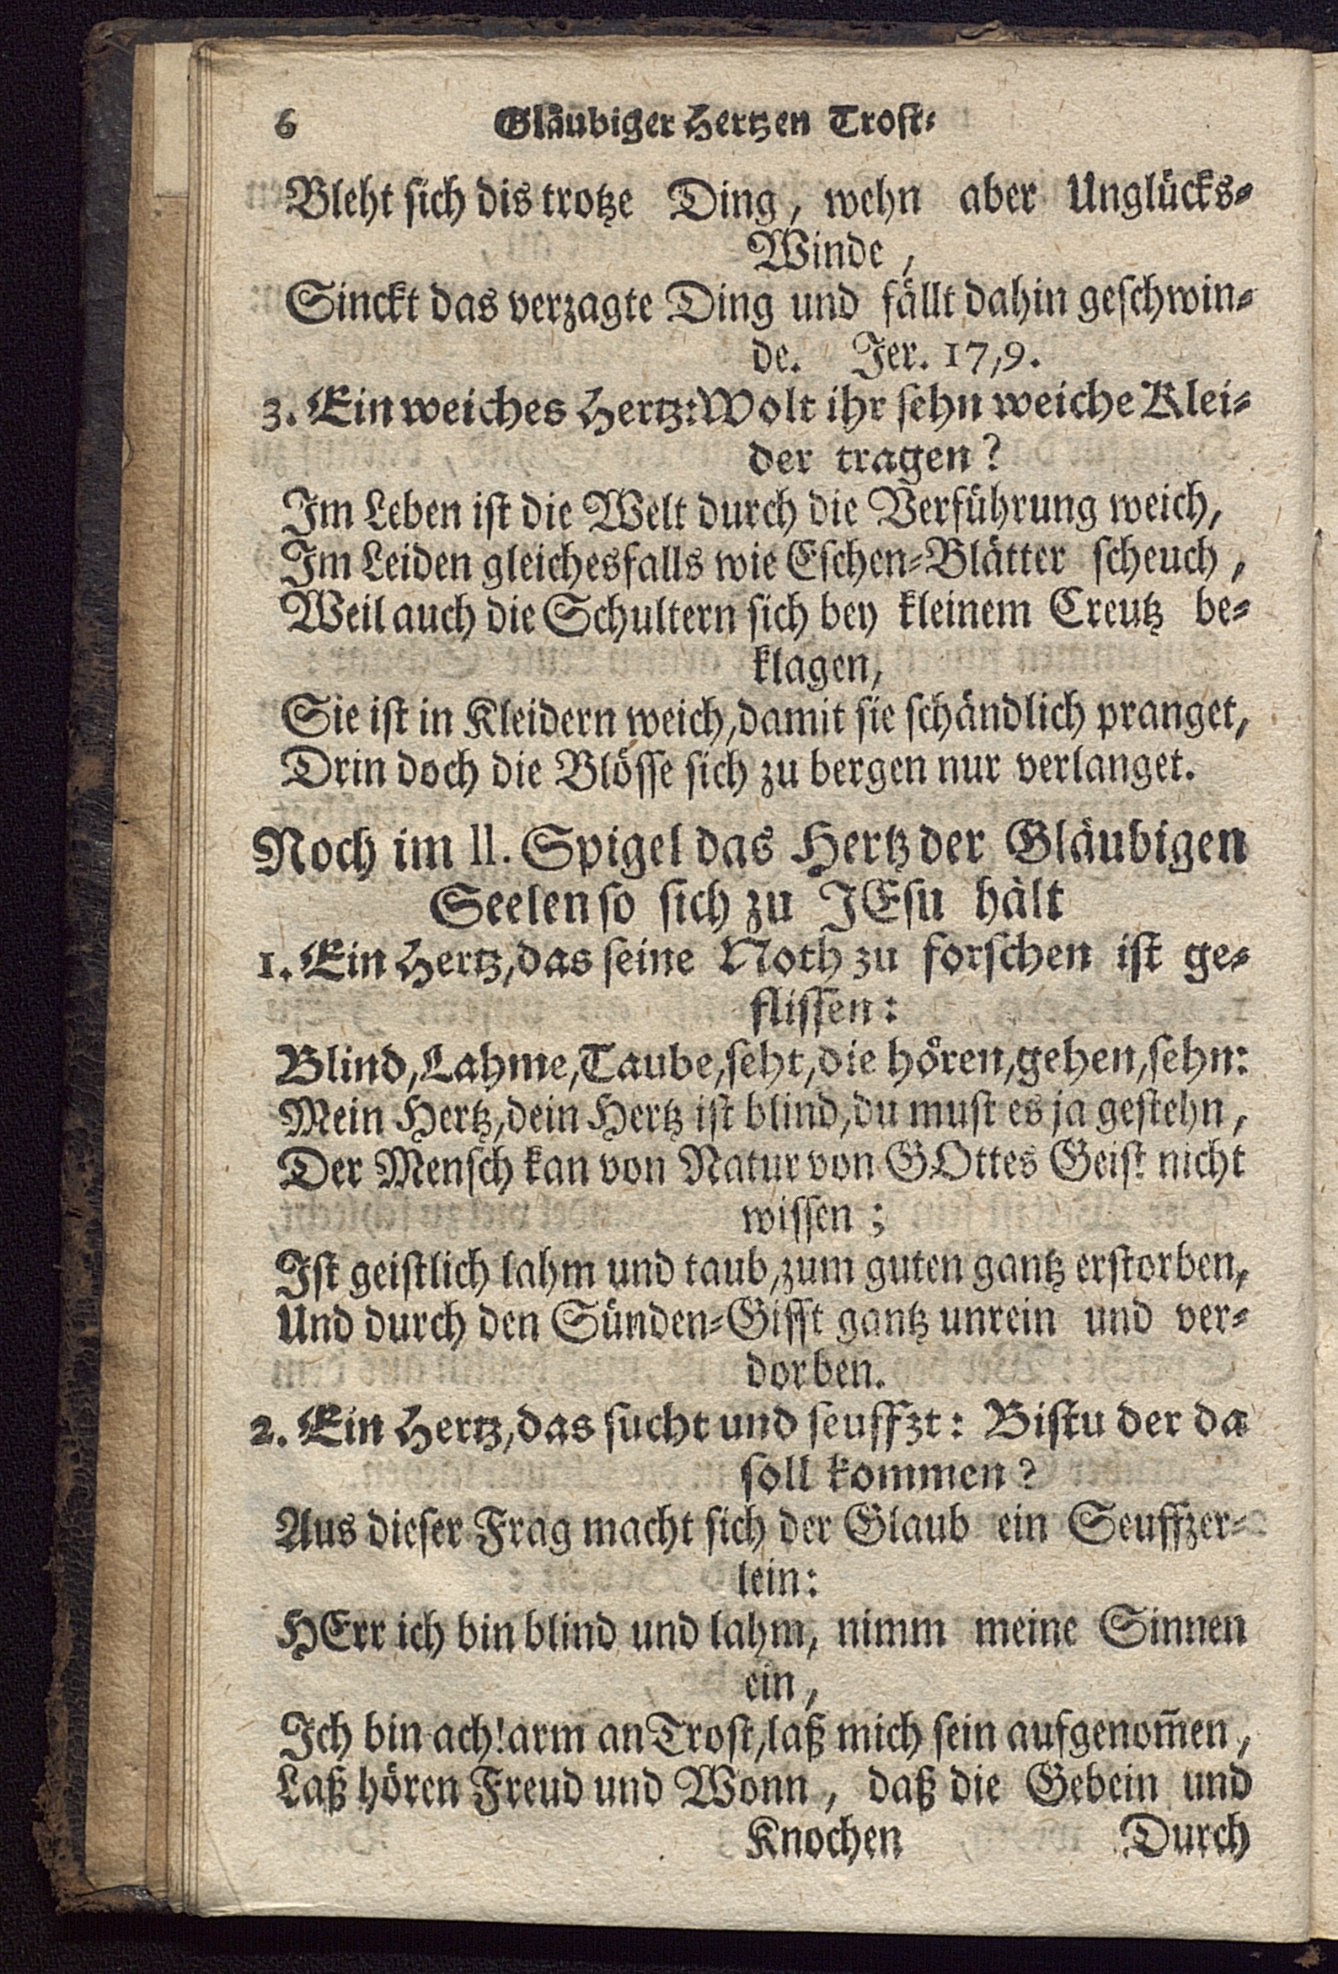 6 Gläubiger Hertzen Trost-
Bleht sich dis trotze Ding, wehn aber Unglücks-
Winde,
Sinckt das verzagte Ding und fällt dahin geschwin-
de. Jer. 17,9.
3. Ein weiches Hertz: Wolt ihr sehn weiche Klei-
der tragen?
Im Leben ist die Welt durch die Verführung weich,
Im Leiden gleichesfalls wie Eschen-Blätter scheuch,
Weil auch die Schultern sich bey kleinem Creutz be-
klagen,
Sie ist in Kleidern weich, damit sie schändlich pranget,
Drin doch die Blösse sich zu bergen nur verlanget.
Noch im II. Spigel das Hertz der Gläubigen
Seelen so sich zu JEsu hält
1. Ein Hertz, das seine Noth zu forschen ist ge-
flissen:
Blind, Lahme, Taube, seht, die hören, gehen, sehn:
Mein Hertz, dein Hertz ist blind, du must es ja gestehn,
Der Mensch kan von Natur von GOttes Geist nicht
wissen;
Ist geistlich lahm und taub, zum guten gantz erstorben,
Und durch den Sünden-Gifft gantz unrein und ver-
dorben.
2. Ein Hertz, das sucht und seuffzt: Bistu der da
soll kommen?
Aus dieser Frag macht sich der Glaub ein Seuffzer-
lein:
HErr ich bin blind und lahm, nimm meine Sinnen
ein,
Ich bin ach! arm an Trost, laß mich sein aufgenom̃en,
Laß hören Freud und Wonn, daß die Gebein und
Knochen Durch